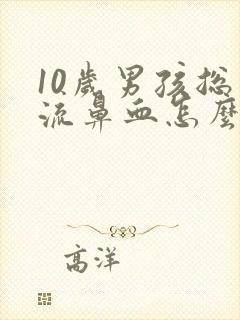 10歲男孩總
流鼻血怎麽
高洋